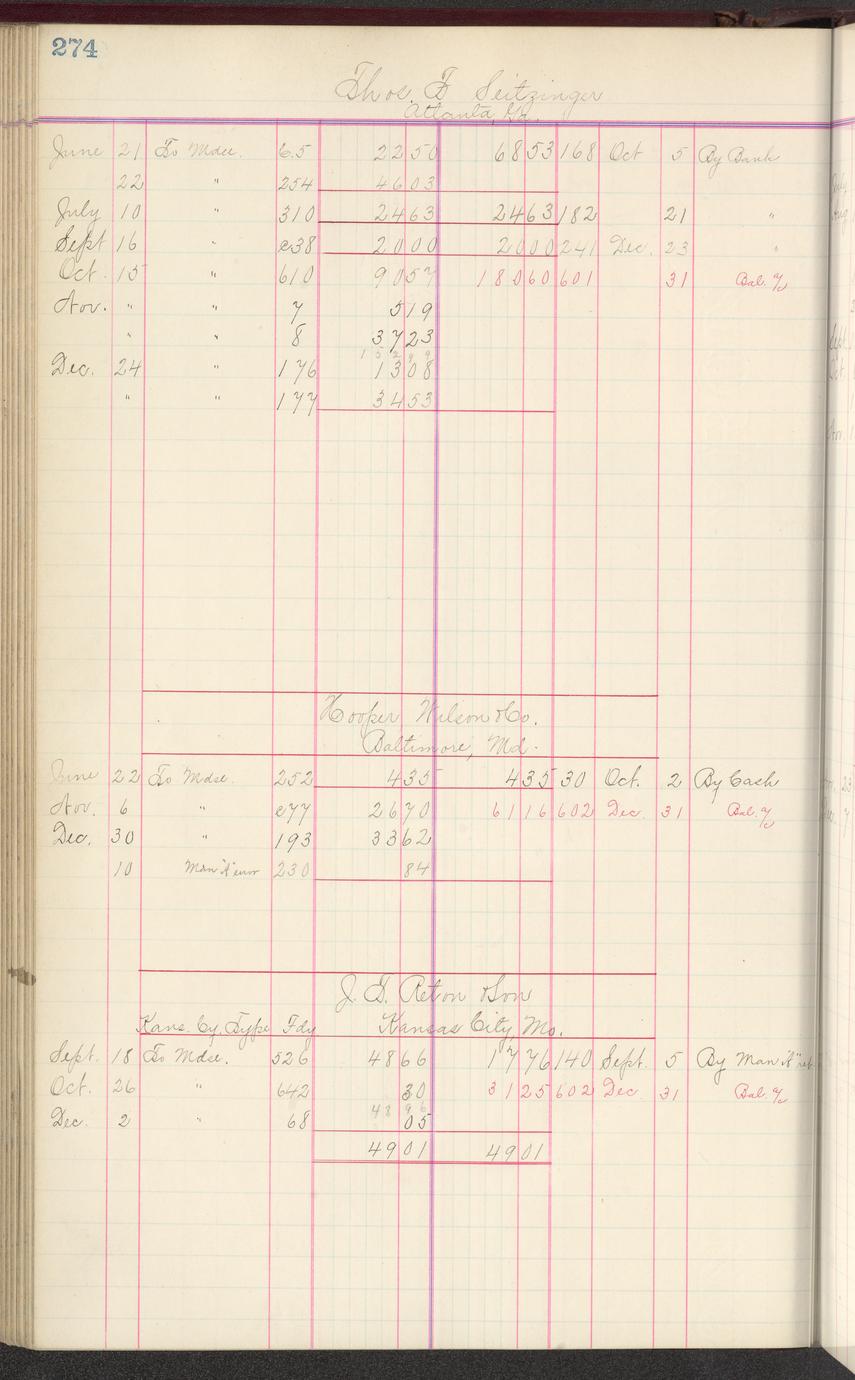 274
Thos. F. Seitzinger
Atlanta, Ga.
June 21 To Mdse. 65 22 50 68 53 168 Oct 5 By Bank
22 " 254 46 03
July 10 " 310 24 63 24 63 182 21 "
Sept 16 " c38 20 00 20 00 241 Dec. 23 "
Oct. 15 " 610 90 57 180 60 601 31 Bal. %
Nov. " 7 5 19
" " 8 37 23
1 5 2 9 9
Dec. 24 " 176 13 08
" " 177 34 53
Hooper Wilson & Co.
Baltimore, Md.
June 22 To Mdse. 252 4 35 4 35 30 Oct. 2 By Cash
Nov. 6 " c77 26 70 61 16 602 Dec. 31 Bal. %
Dec. 30 " 193 33 62
10 Man'f' error 230 84
J. G. Reton & Son
Kans. Cy. Type Fdy Kansas City, Mo.
Sept. 18 To Mdse. 526 48 66 17 76 140 Sept. 5 By Man'f' ret.
Oct. 26 " 642 30 31 25 602 Dec 31 Bal. %
48 96
Dec. 2 " 68 05
49 01 49 01